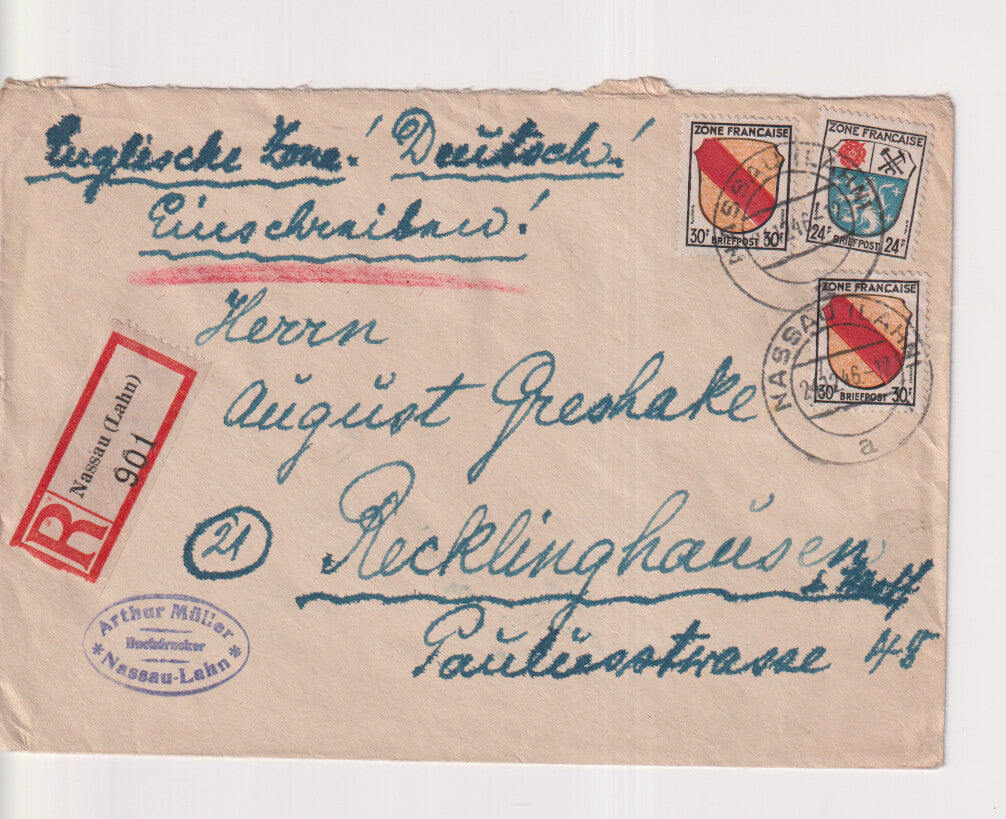 Englische Zone! Deutsch!
Einschreiben!
Herrn
August Greshake
21
Recklinghausen
i. Westf
Pauliusstrasse 48
R
Nassau (Lahn)
901
Arthur Müller
Buchdrucker
* Nassau-Lahn *
ZONE FRANÇAISE
30F BRIEFPOST 30F
ZONE FRANÇAISE
24F BRIEFPOST 24F
ZONE FRANÇAISE
30F BRIEFPOST 30F
NASSAU (LAHN)
a